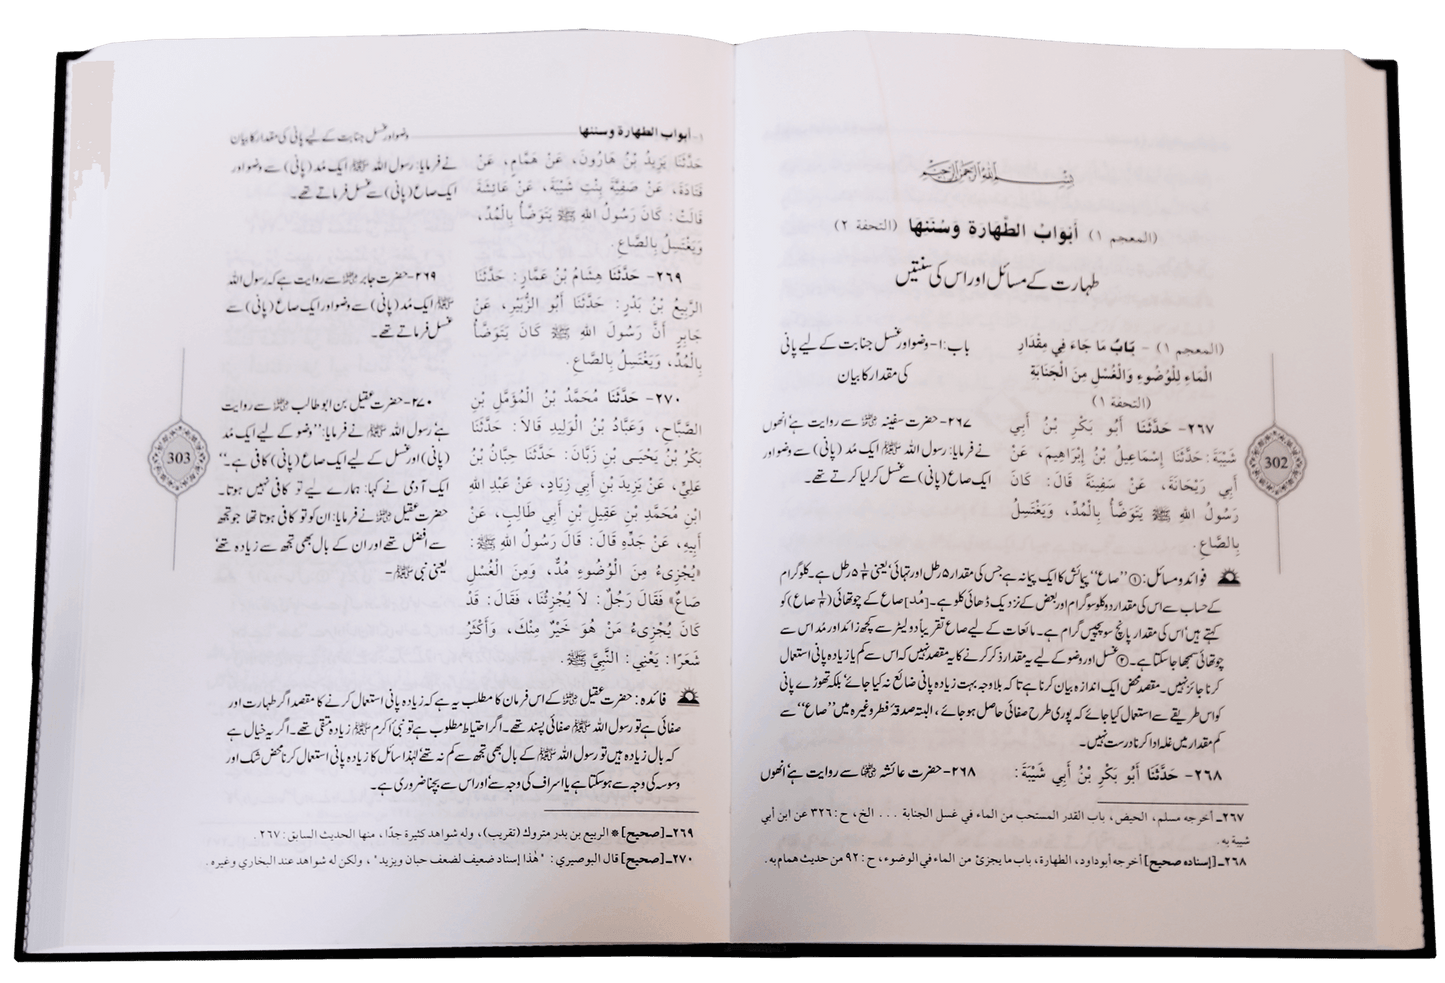 بِسْمِ اللهِ الرَّحْمٰنِ الرَّحِيْمِ
(المعجم ١) أَبْوَابُ الطَّهَارَةِ وَسُنَنِهَا (التحفة ٢)
طہارت کے مسائل اور اس کی سنتیں
(المعجم ١) - بَابُ مَا جَاءَ فِي مِقْدَارِ
الْمَاءِ لِلْوُضُوءِ وَالْغُسْلِ مِنَ الْجَنَابَةِ
(التحفة ١)
باب:۱- وضو اور غسل جنابت کے لیے پانی
کی مقدار کا بیان
٢٦٧- حَدَّثَنَا أَبُو بَكْرِ بْنُ أَبِي
شَيْبَةَ: حَدَّثَنَا إِسْمَاعِيلُ بْنُ إِبْرَاهِيمَ، عَنْ
أَبِي رَيْحَانَةَ، عَنْ سَفِينَةَ قَالَ: كَانَ
رَسُولُ اللهِ ﷺ يَتَوَضَّأُ بِالْمُدِّ، وَيَغْتَسِلُ
بِالصَّاعِ.
۲۶۷- حضرت سفینہ ؓ سے روایت ہے انھوں
نے فرمایا: رسول اللہ ﷺ ایک مُد (پانی) سے وضو اور
ایک صاع (پانی) سے غسل کر لیا کرتے تھے۔
302
فوائد و مسائل: ① ’’صاع‘‘ پیمائش کا ایک پیمانہ ہے جس کی مقدار ۵ رطل اور تہائی‘ یعنی ۵ ۱/۳ رطل ہے۔ کلوگرام
کے حساب سے اس کی مقدار دو کلو سو گرام اور بعض کے نزدیک ڈھائی کلو ہے۔ [مُد] صاع کے چوتھائی (۱/۴ صاع) کو
کہتے ہیں‘ اس کی مقدار پانچ سو پچیس گرام ہے۔ مائعات کے لیے صاع تقریباً دو لیٹر سے کچھ زائد اور مُد اس سے
چوتھائی سمجھا جا سکتا ہے۔ ② غسل اور وضو کے لیے یہ مقدار ذکر کرنے کا یہ مقصد نہیں کہ اس سے کم یا زیادہ پانی استعمال
کرنا جائز نہیں۔ مقصد محض ایک اندازہ بیان کرنا ہے تا کہ بلا وجہ بہت زیادہ پانی ضائع نہ کیا جائے‘ بلکہ تھوڑے پانی
کو اس طریقے سے استعمال کیا جائے کہ پوری طرح صفائی حاصل ہو جائے ، البتہ صدقۂ فطر وغیرہ میں ’’صاع‘‘ سے
کم مقدار میں غلہ ادا کرنا درست نہیں۔
٢٦٨- حَدَّثَنَا أَبُو بَكْرِ بْنُ أَبِي شَيْبَةَ:
۲۶۸- حضرت عائشہ ؓ سے روایت ہے‘ انھوں
٢٦٧ـ أخرجه مسلم، الحيض، باب القدر المستحب من الماء في غسل الجنابة . . . الخ، ح: ٣٢٦ عن ابن أبي
شيبة به.
٢٦٨ـ [إسناده صحيح] أخرجه أبوداود، الطهارة، باب ما يجزئ من الماء في الوضوء، ح: ٩٢ من حديث همام به.
أبواب الطهارة وسننها
وضو اور غسل جنابت کے لیے پانی کی مقدار کا بیان
حَدَّثَنَا يَزِيدُ بْنُ هَارُونَ، عَنْ هَمَّامٍ، عَنْ
قَتَادَةَ، عَنْ صَفِيَّةَ بِنْتِ شَيْبَةَ، عَنْ عَائِشَةَ
قَالَتْ: كَانَ رَسُولُ اللهِ ﷺ يَتَوَضَّأُ بِالْمُدِّ،
وَيَغْتَسِلُ بِالصَّاعِ.
نے فرمایا: رسول اللہ ﷺ ایک مُد (پانی) سے وضو اور
ایک صاع (پانی) سے غسل فرماتے تھے۔
٢٦٩- حَدَّثَنَا هِشَامُ بْنُ عَمَّارٍ: حَدَّثَنَا
الرَّبِيعُ بْنُ بَدْرٍ: حَدَّثَنَا أَبُو الزُّبَيْرِ، عَنْ
جَابِرٍ أَنَّ رَسُولَ اللهِ ﷺ كَانَ يَتَوَضَّأُ
بِالْمُدِّ، وَيَغْتَسِلُ بِالصَّاعِ.
۲۶۹- حضرت جابر ؓ سے روایت ہے کہ رسول اللہ
ﷺ ایک مُد (پانی) سے وضو اور ایک صاع (پانی) سے
غسل فرماتے تھے۔
٢٧٠- حَدَّثَنَا مُحَمَّدُ بْنُ الْمُؤَمَّلِ بْنِ
الصَّبَّاحِ، وَعَبَّادُ بْنُ الْوَلِيدِ قَالَا: حَدَّثَنَا
بَكْرُ بْنُ يَحْيَى بْنِ زَبَّانَ: حَدَّثَنَا حِبَّانُ بْنُ
عَلِيٍّ، عَنْ يَزِيدَ بْنِ أَبِي زِيَادٍ، عَنْ عَبْدِ اللهِ
ابْنِ مُحَمَّدِ بْنِ عَقِيلِ بْنِ أَبِي طَالِبٍ، عَنْ
أَبِيهِ، عَنْ جَدِّهِ قَالَ: قَالَ رَسُولُ اللهِ ﷺ:
«يُجْزِىءُ مِنَ الْوُضُوءِ مُدٌّ، وَمِنَ الْغُسْلِ
صَاعٌ» فَقَالَ رَجُلٌ: لَا يُجْزِئُنَا، فَقَالَ: قَدْ
كَانَ يُجْزِىءُ مَنْ هُوَ خَيْرٌ مِنْكَ، وَأَكْثَرُ
شَعَرًا: يَعْنِي: النَّبِيَّ ﷺ.
۲۷۰- حضرت عقیل بن ابو طالب ؓ سے روایت
ہے‘ رسول اللہ ﷺ نے فرمایا: ’’وضو کے لیے ایک مُد
(پانی) اور غسل کے لیے ایک صاع (پانی) کافی ہے۔‘‘
ایک آدمی نے کہا: ہمارے لیے تو کافی نہیں ہوتا۔
حضرت عقیل ؓ نے فرمایا: ان کو تو کافی ہوتا تھا جو تجھ
سے افضل تھے اور ان کے بال بھی تجھ سے زیادہ تھے‘
یعنی نبی ﷺ۔
303
فائدہ: حضرت عقیل ؓ کے اس فرمان کا مطلب یہ ہے کہ زیادہ پانی استعمال کرنے کا مقصد اگر طہارت اور
صفائی ہے تو رسول اللہ ﷺ صفائی پسند تھے۔ اگر احتیاط مطلوب ہے تو نبی اکرم ﷺ زیادہ متقی تھے۔ اگر یہ خیال ہے
کہ بال زیادہ ہیں تو رسول اللہ ﷺ کے بال بھی تجھ سے کم نہ تھے‘ لہٰذا سائل کا زیادہ پانی استعمال کرنا محض شک اور
وسوسہ کی وجہ سے ہو سکتا ہے یا اسراف کی وجہ سے‘ اور اس سے بچنا ضروری ہے۔
٢٦٩ـ [صحيح] * الربيع بن بدر متروك (تقريب)، وله شواهد كثيرة جدًّا، منها الحديث السابق: ٢٦٧.
٢٧٠ـ [صحيح] قال البوصيري: "هٰذا إسناد ضعيف لضعف حبان ويزيد"، ولكن له شواهد عند البخاري وغيره.